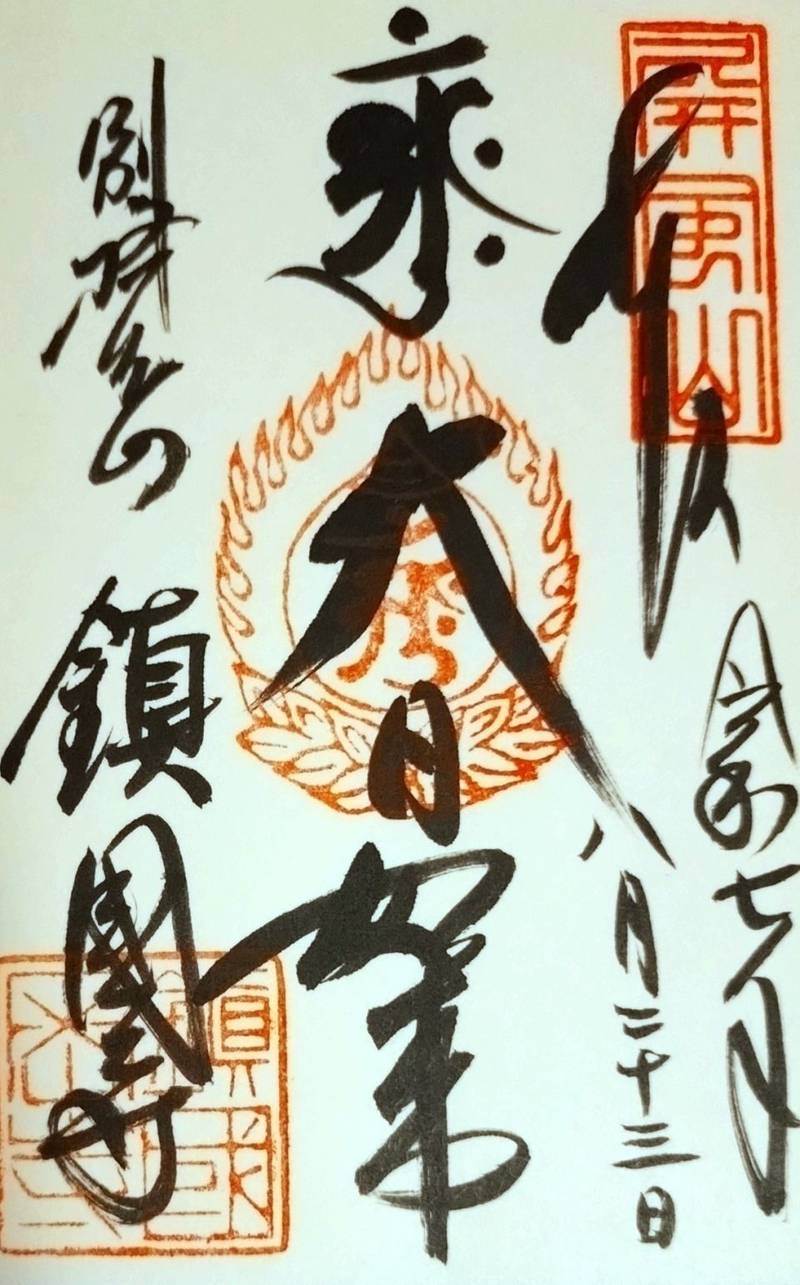 屏風山
奉拝
令和七年
八月二十三日
大日如来
別格本山
鎮國寺